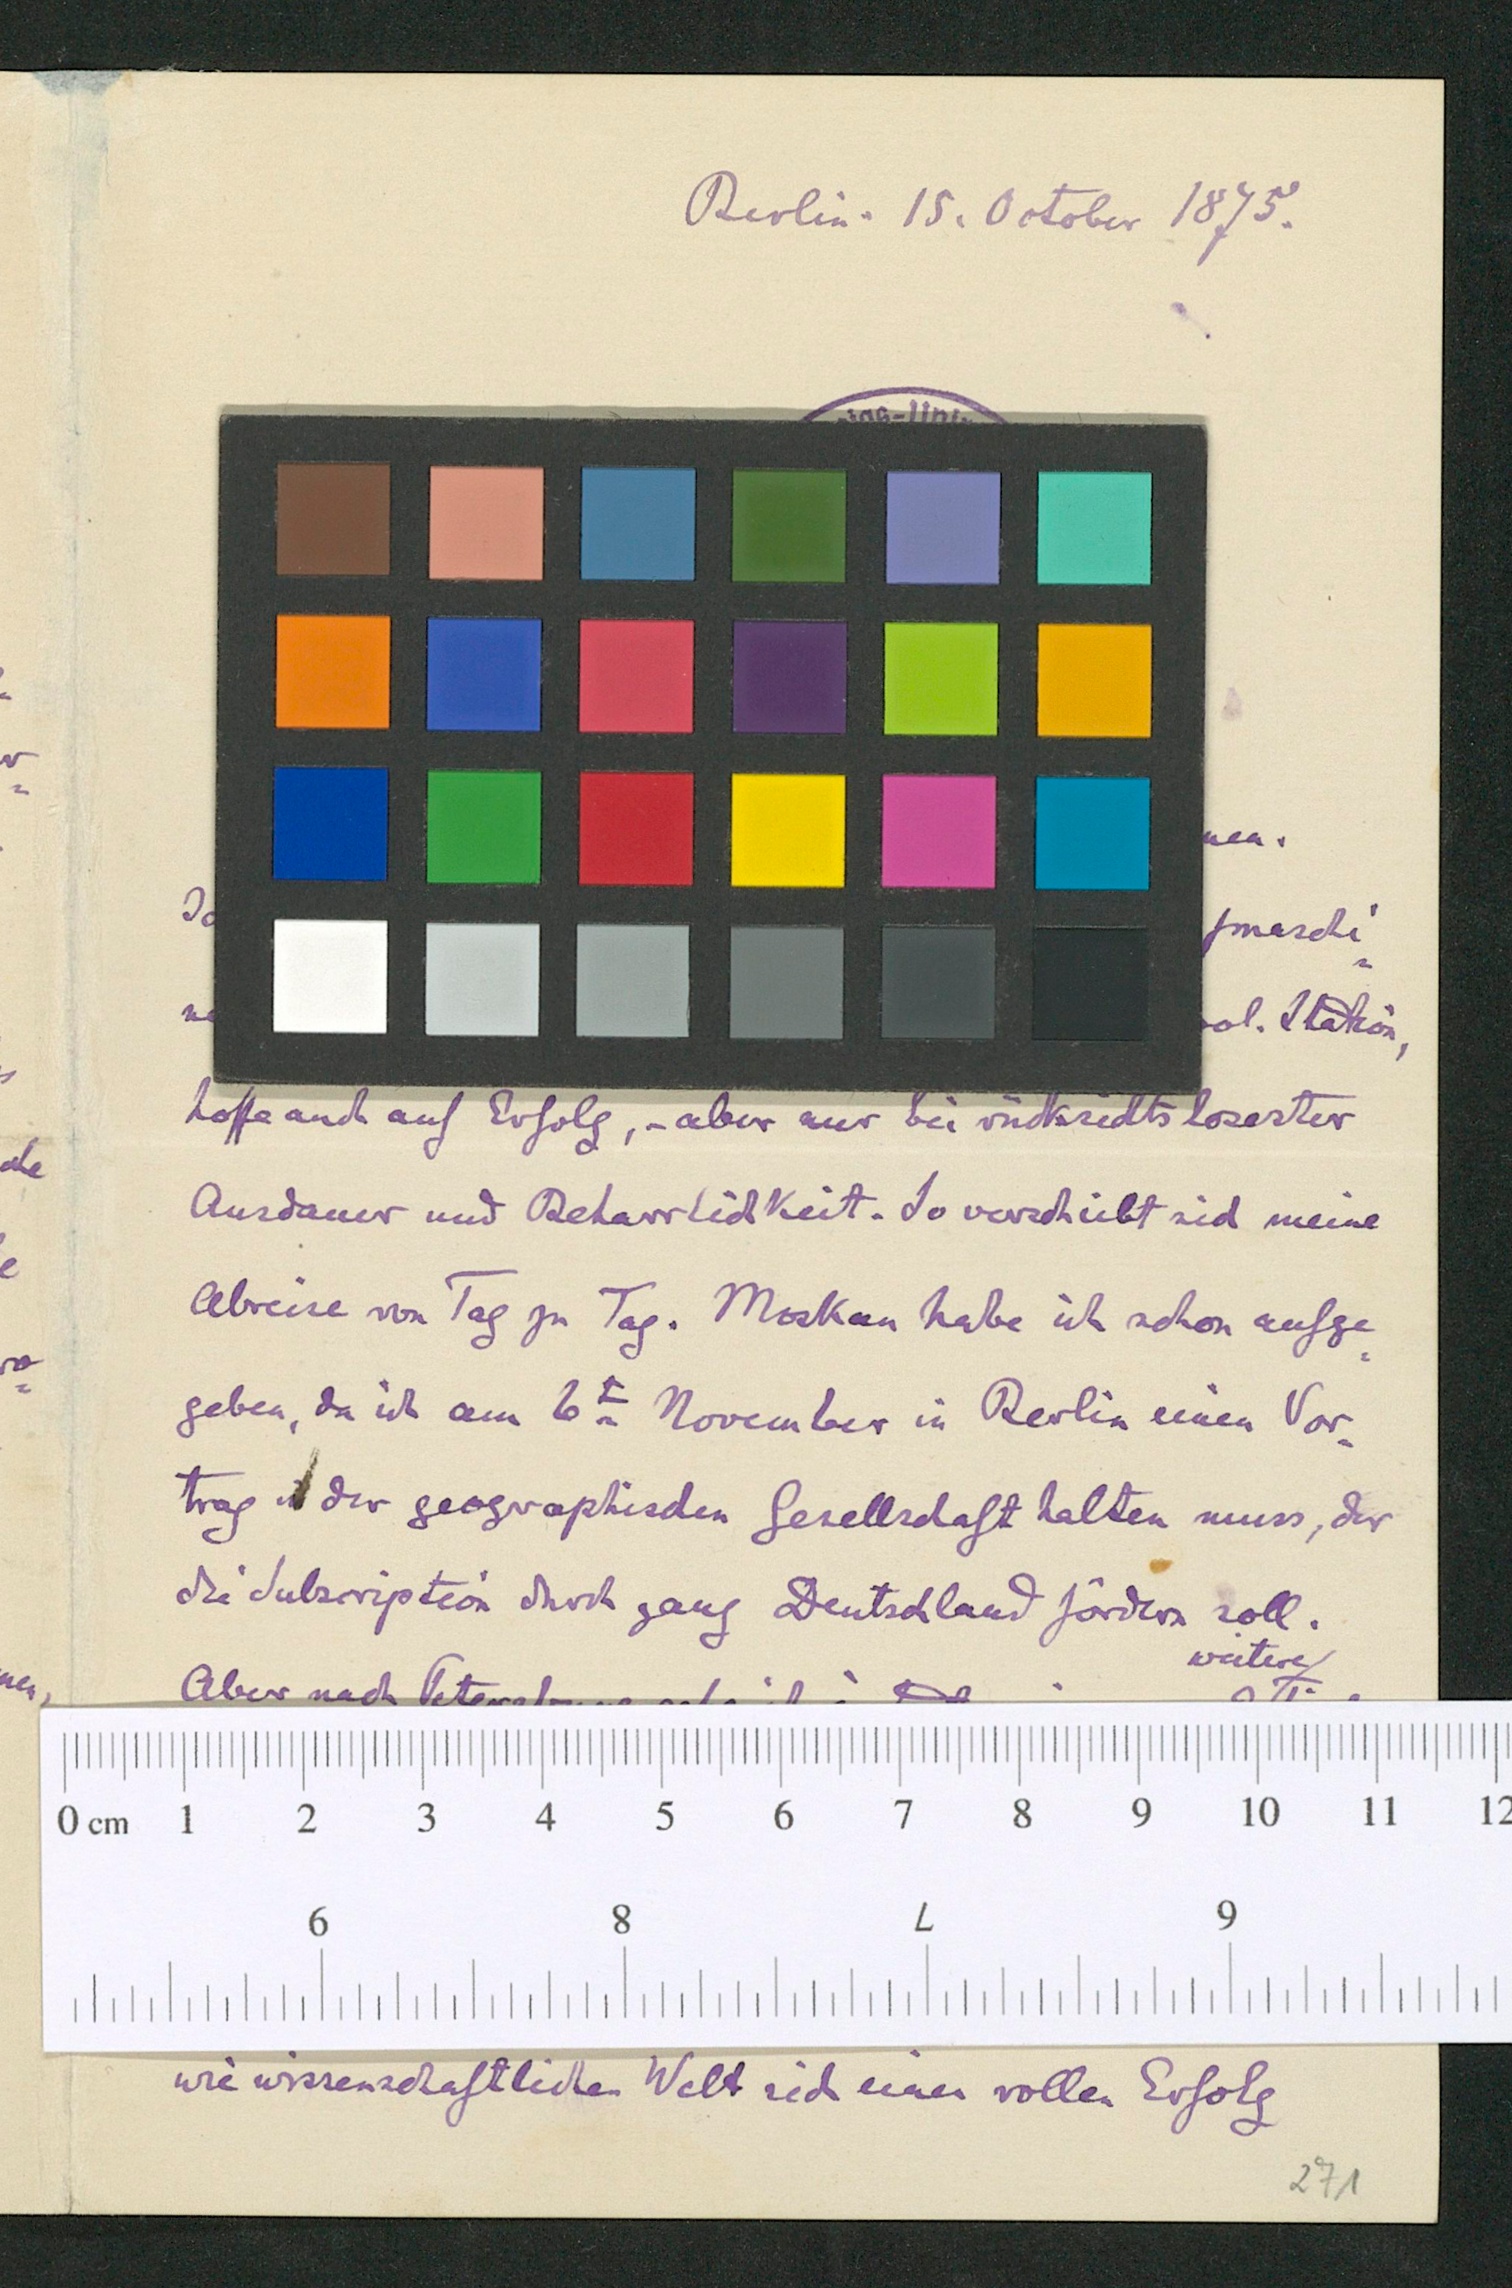 Berlin. 15. October 1875.
nen.
maschi-
ool. Station,
hoffe auch auf Erfolg, - aber nur bei rücksichtslosester
Ausdauer und Beharrlichkeit. So verschiebt sich meine
Abreise von Tag zu Tag. Moskau habe ich schon aufge-
geben, da ich am 6tn November in Berlin einen Vor-
trag in der geographischen Gesellschaft halten muss, der
die Subscription durch ganz Deutschland fördern soll.
weitere
Aber nach Petersburg
0 cm 1 2 3 4 5 6 7 8 9 10 11 12
9 8 7 6
wie wissenschaftlichen Welt sich einen vollen Erfolg
271